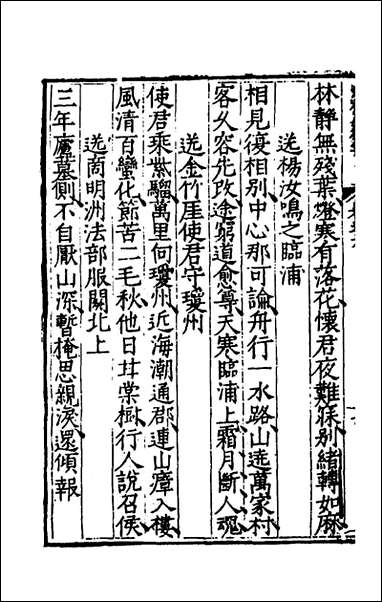 林靜無殘葉燈寒有落花懷君夜難寐别緒轉如麻
送楊汝鳴之臨浦
相見復相别中心那可論舟行一水路山送萬家村
客久容先改途窮道愈尊天寒臨浦上霜月斷人魂
送金竹厓使君守瓊州
使君乘紫騮萬里向瓊州近海潮通郡連山瘴入樓
風清百蠻化節苦二毛秋他日甘棠樹行人說召侯
送商明洲法部服闋北上
三年廬墓側不自厭山深暫掩思親淚還傾報